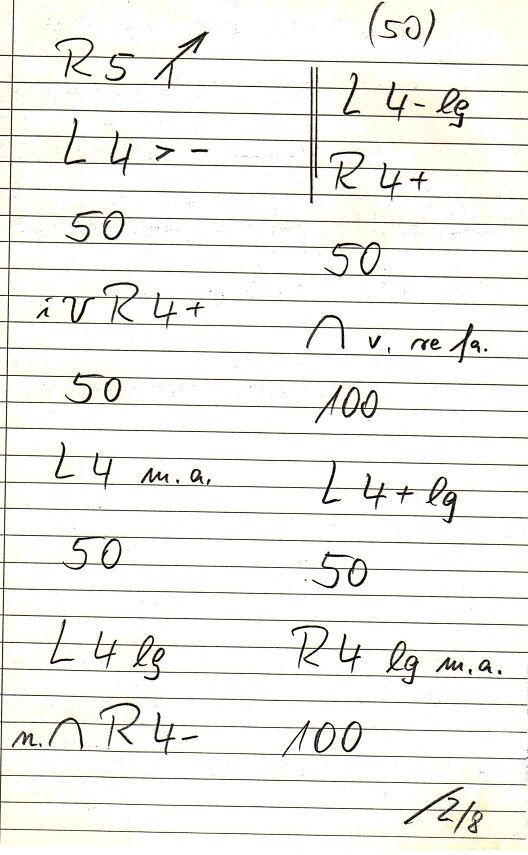 R 5 ↗
L 4 > -
50
i v R 4 +
50
L 4 m.a.
50
L 4 lg
n. ∩ R 4 -
(50)
L 4 - lg
R 4 +
50
∩ v. re fa.
100
L 4 + lg
50
R 4 lg m.a.
100
/2/8